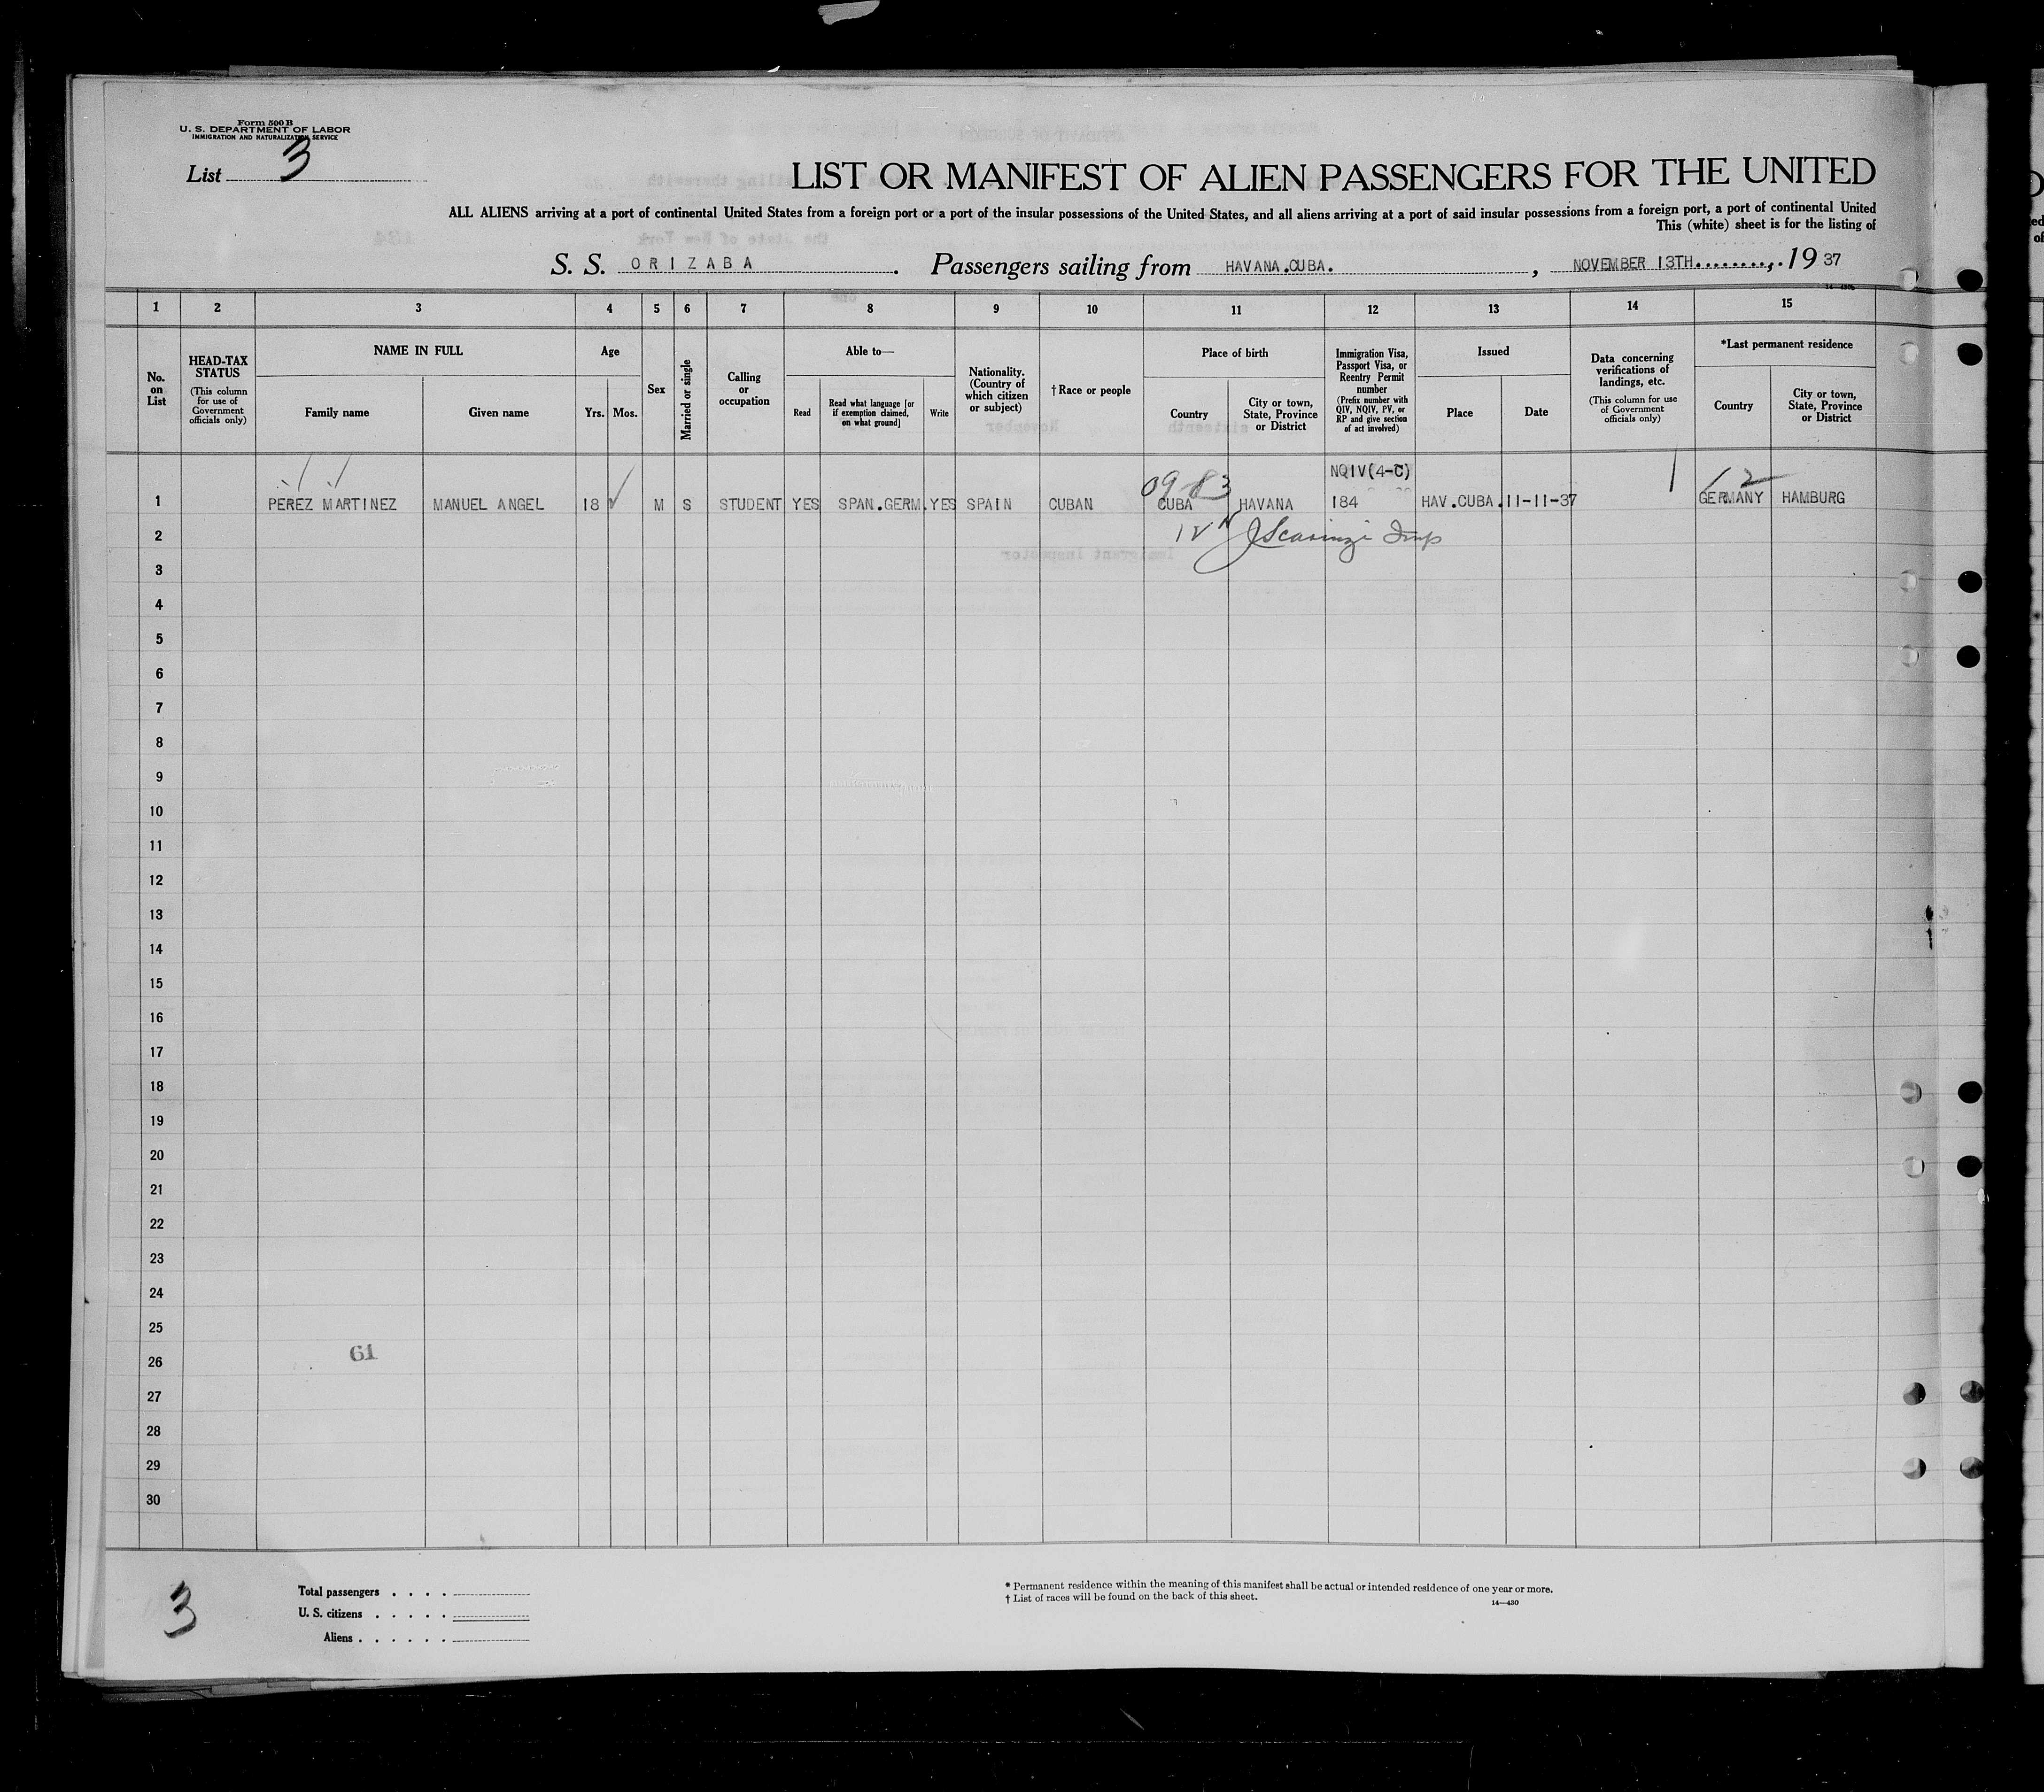 Form 500 B
U. S. DEPARTMENT OF LABOR
IMMIGRATION AND NATURALIZATION SERVICE
List 3
LIST OR MANIFEST OF ALIEN PASSENGERS FOR THE UNITED
ALL ALIENS arriving at a port of continental United States from a foreign port or a port of the insular possessions of the United States, and all aliens arriving at a port of said insular possessions from a foreign port, a port of continental United
This (white) sheet is for the listing of
S. S. ORIZABA. Passengers sailing from HAVANA.CUBA. , NOVEMBER 13TH........,.1937
1 2 3 4 5 6 7 8 9 10 11 12 13 14 15
No. on List
HEAD-TAX STATUS
(This column for use of Government officials only)
NAME IN FULL
Family name
Given name
Age
Yrs.
Mos.
Sex
Married or single
Calling or occupation
Able to—
Read
Read what language [or if exemption claimed, on what ground]
Write
Nationality. (Country of which citizen or subject)
† Race or people
Place of birth
Country
City or town, State, Province or District
Immigration Visa, Passport Visa, or Reentry Permit number
(Prefix number with QIV, NQIV, PV, or RP and give section of act involved)
Issued
Place
Date
Data concerning verifications of landings, etc.
(This column for use of Government officials only)
*Last permanent residence
Country
City or town, State, Province or District
09 83 NQIV(4-C) 12
1 PEREZ MARTINEZ MANUEL ANGEL 18 M S STUDENT YES SPAN.GERM. YES SPAIN CUBAN CUBA HAVANA 184 HAV.CUBA. 11-11-37 GERMANY HAMBURG
2
3
4
5
6
7
8
9
10
11
12
13
14
15
16
17
18
19
20
21
22
23
24
25
61
26
27
28
29
30
3
Total passengers . . . .
U. S. citizens . . . . .
Aliens . . . . . .
* Permanent residence within the meaning of this manifest shall be actual or intended residence of one year or more.
† List of races will be found on the back of this sheet.
14—430